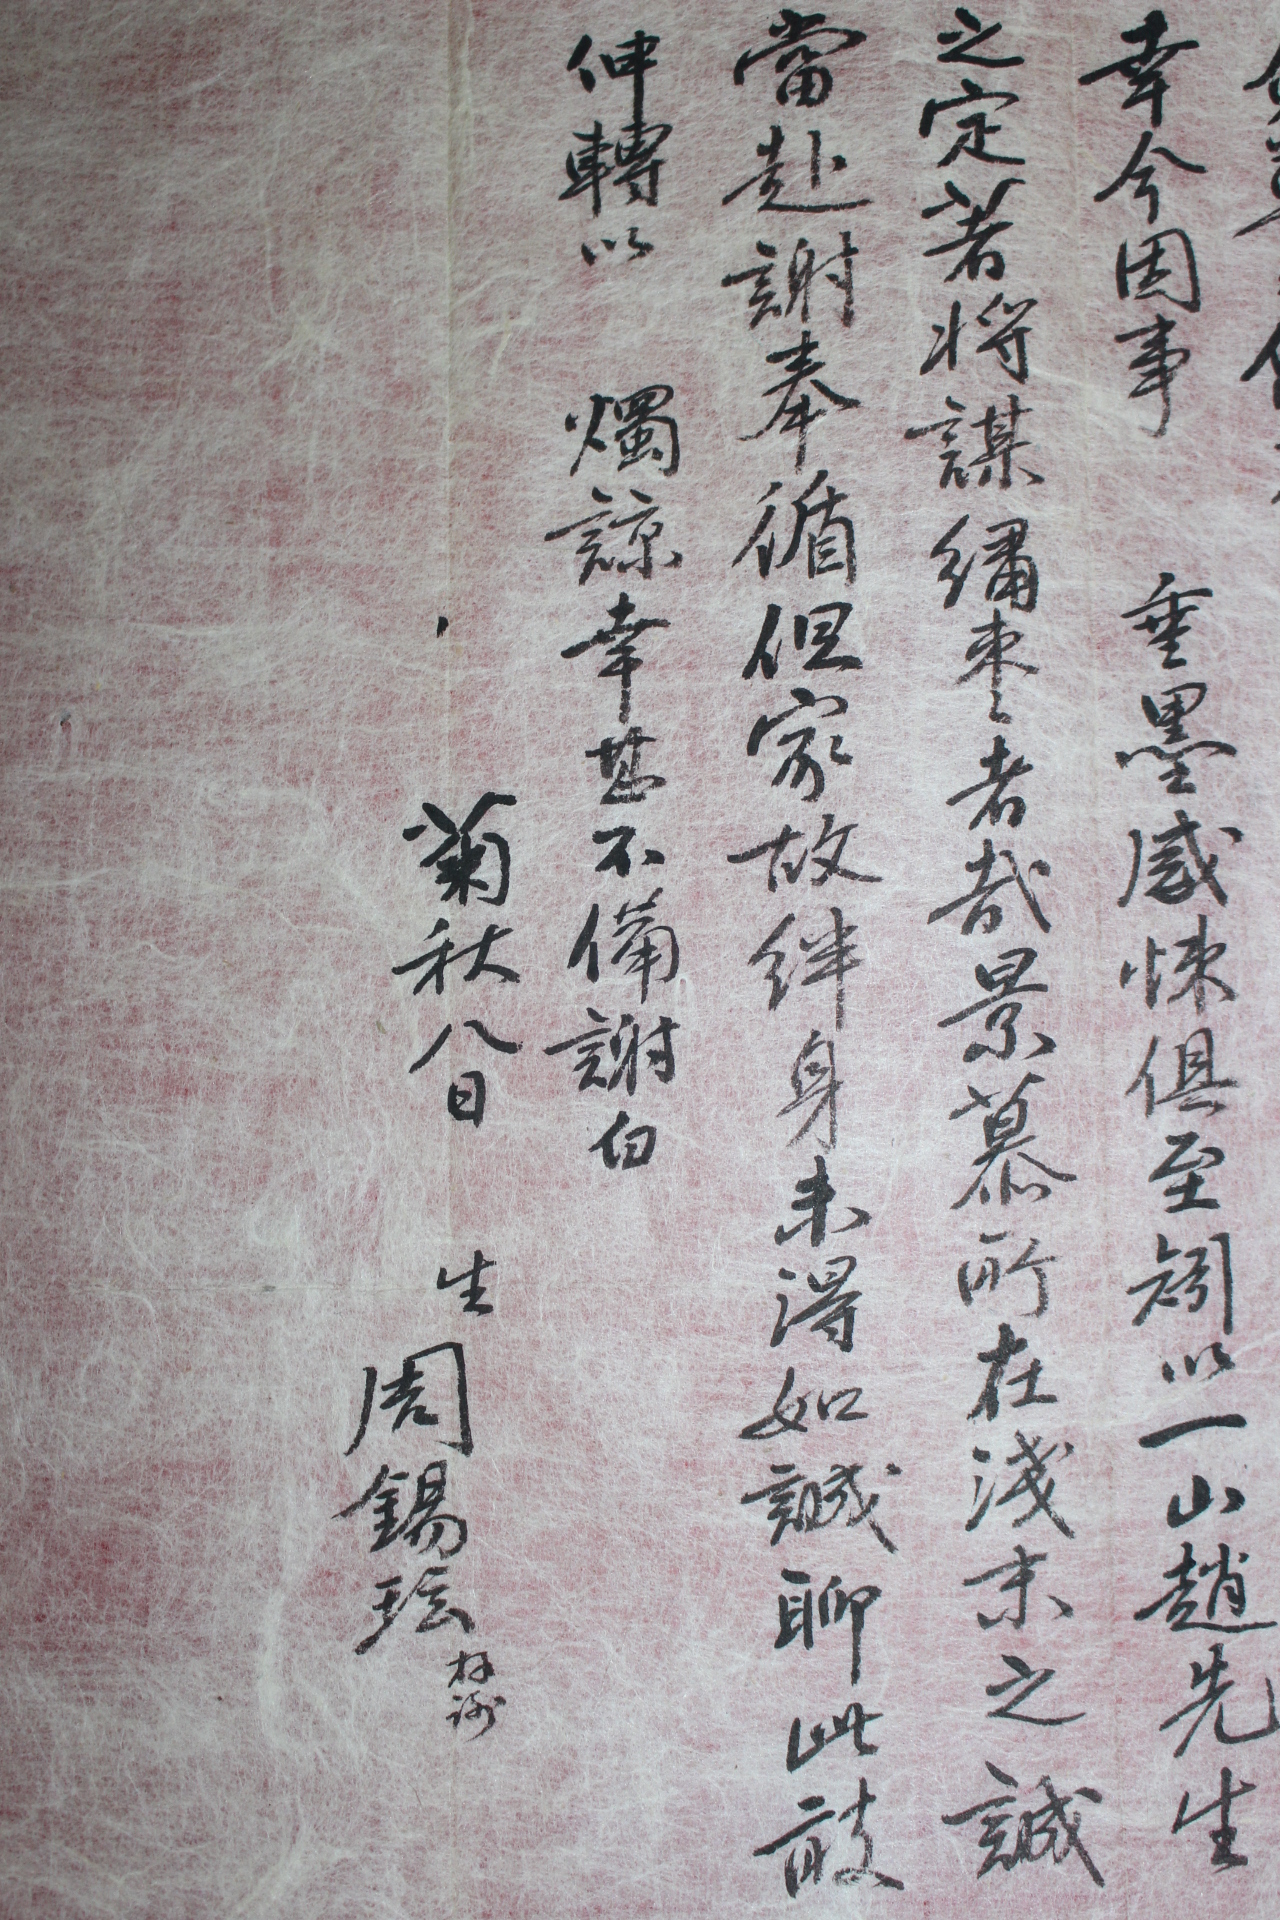 幸今因事 垂墨感悚俱至矧以一山趙先生
之定著將謀繡枣者哉景慕所在淺末之誠
當赴謝奉循但家故絆身未得如誠聊此敼
伸轉以 燭諒幸甚不備謝白
菊秋八日 生 周錫玹 拜謝